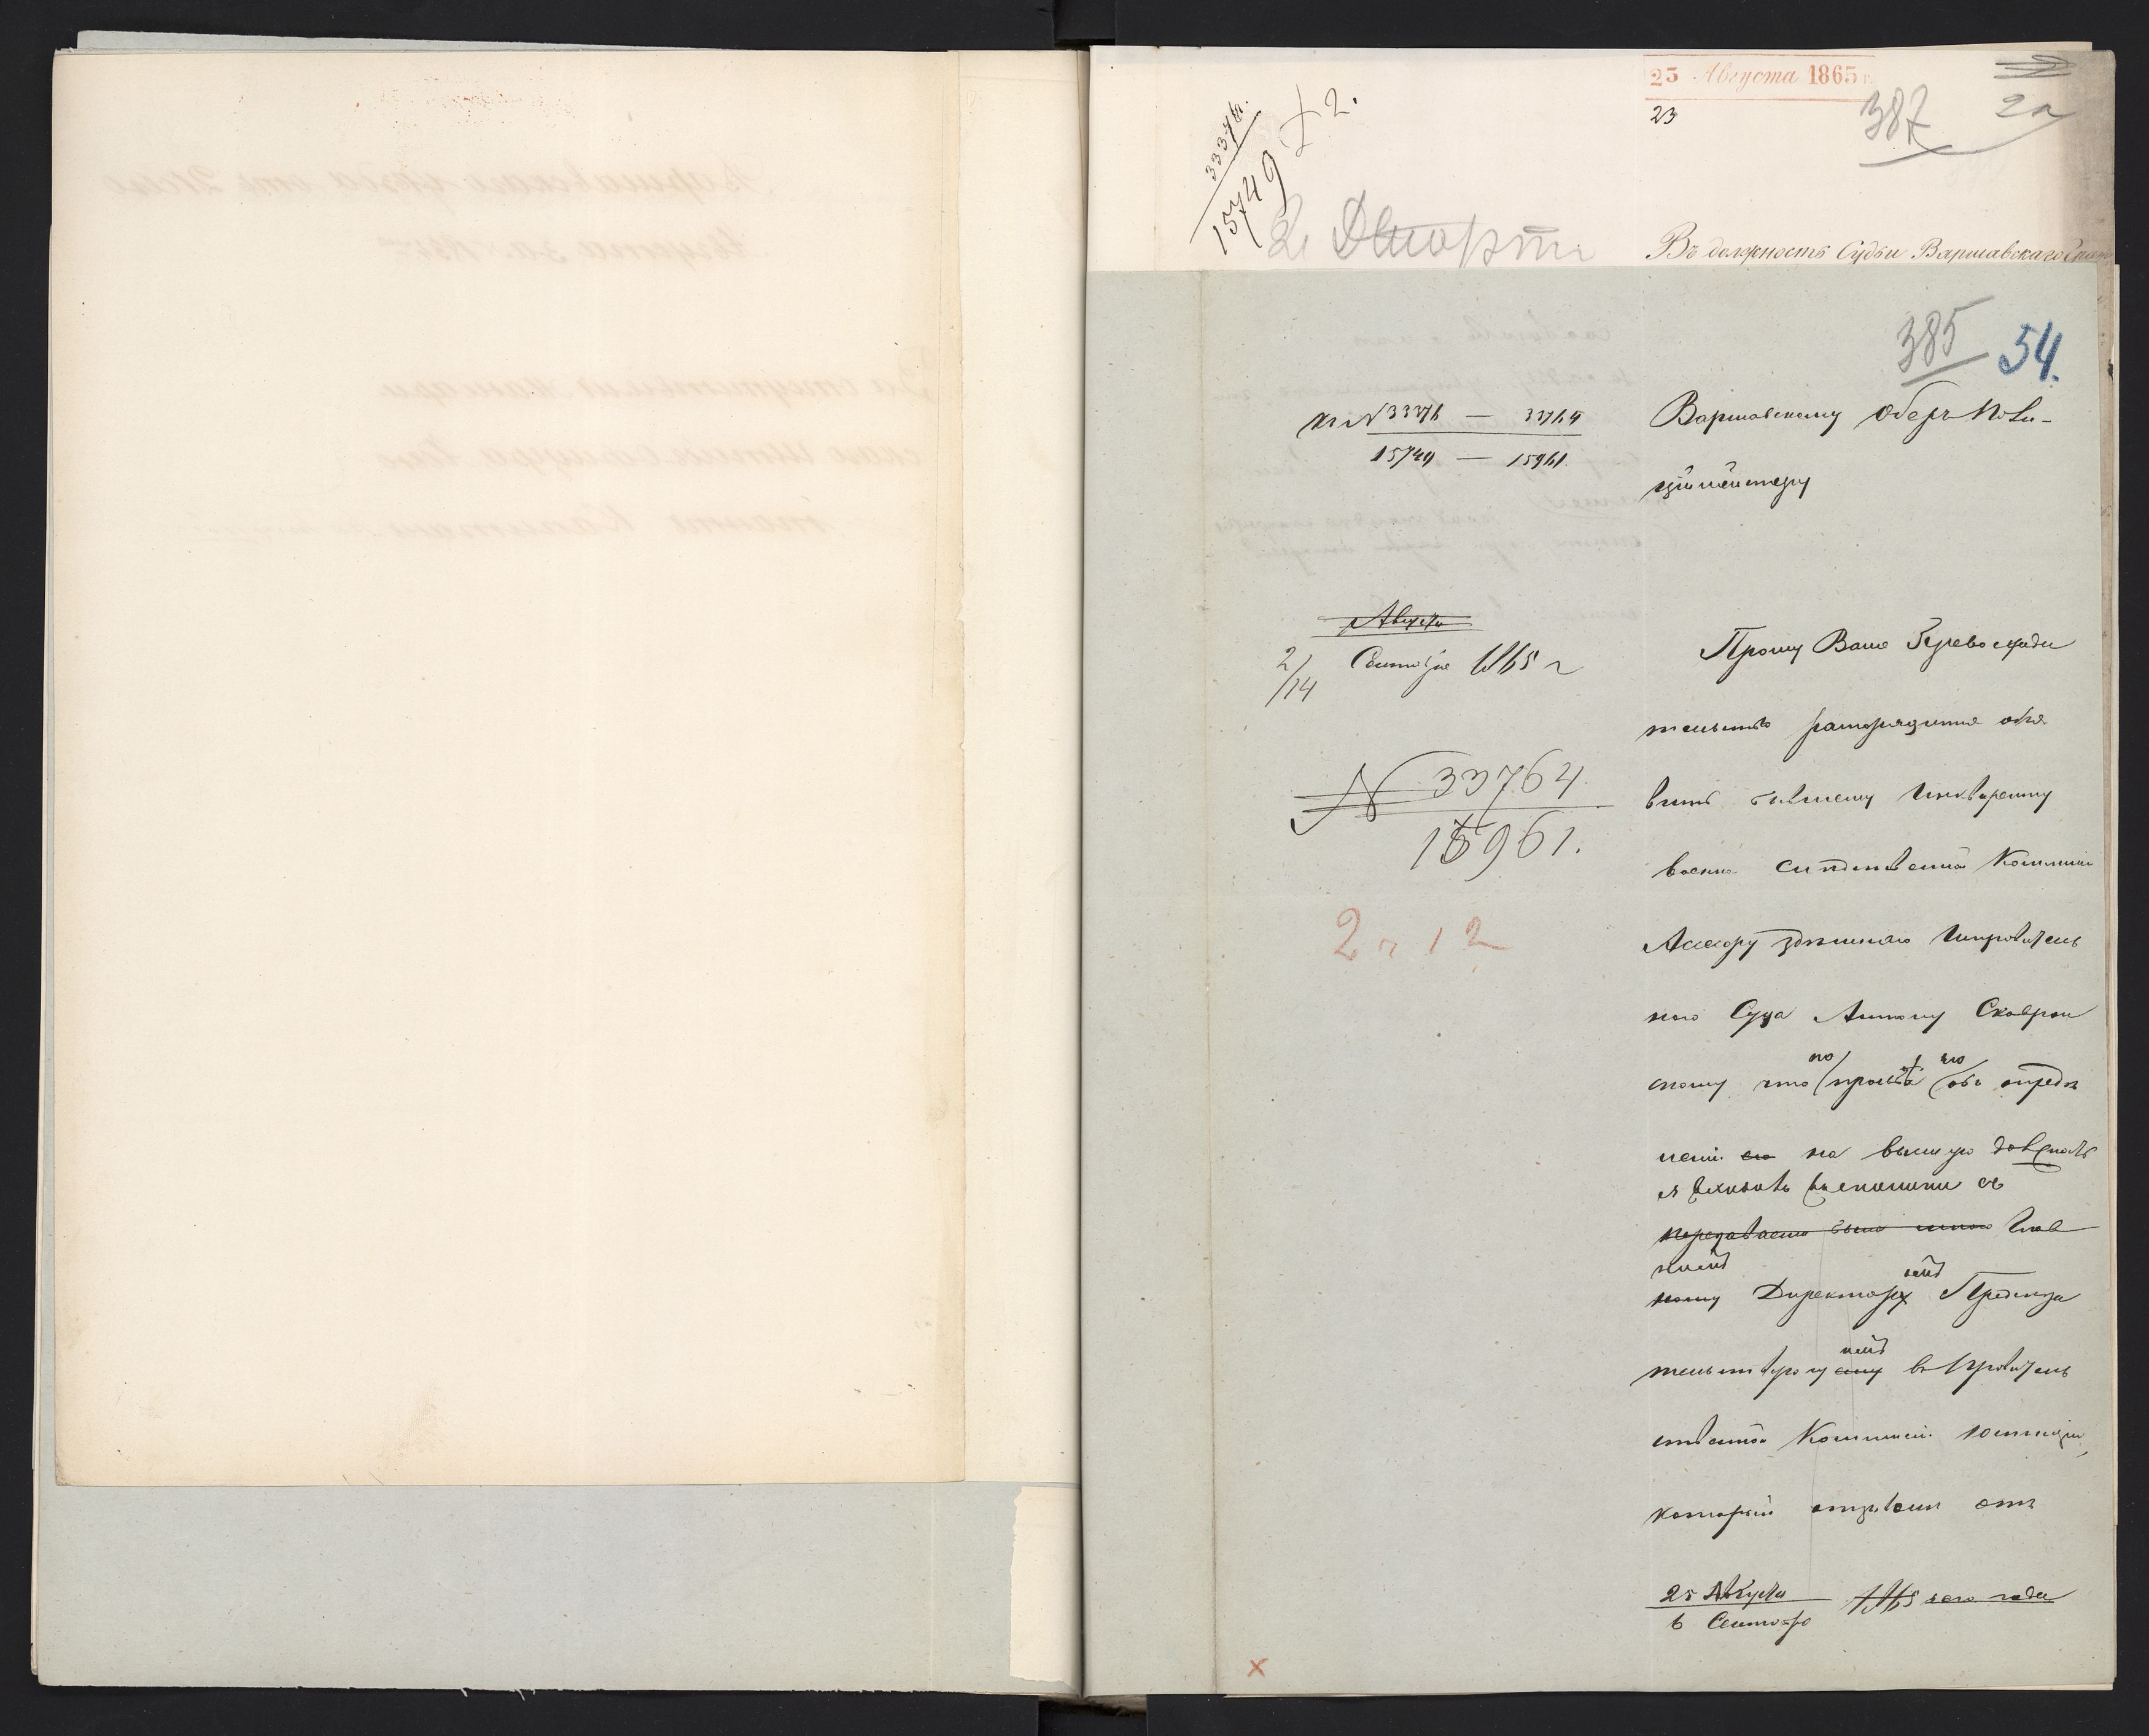 25 Августа 1865 г.
23
387
2 л
33376.
15749
2.
Въ должность Судьи Варшавскаго
385 54.
къ N 33376 — 33764
15749 — 15961.
Варшавскому Оберъ Поли-
цiймейстеру
Августа
2/14 Сентября 1865 г
N 33764.
15961.
2 г 12
Прошу Ваше Превосходи
тельство распорядится объя
вить бывшему Инквиренту
военно следственной Коммисiи
Ассесору здѣшняго Исправитель
наго Суда Антону Скаврон
скому что по просьбѣ его объ опредѣ
ленiи его на высшую должность
я входилъ въ сношенiе съ
передаваемо было мною Глав
нымъ
ному Директору Предсѣда
тельствующему въ Правитель
ственной Коммисiи Юстицiи,
который отзывомъ отъ
25 Августа
6 Сентября 1865 сего года
х